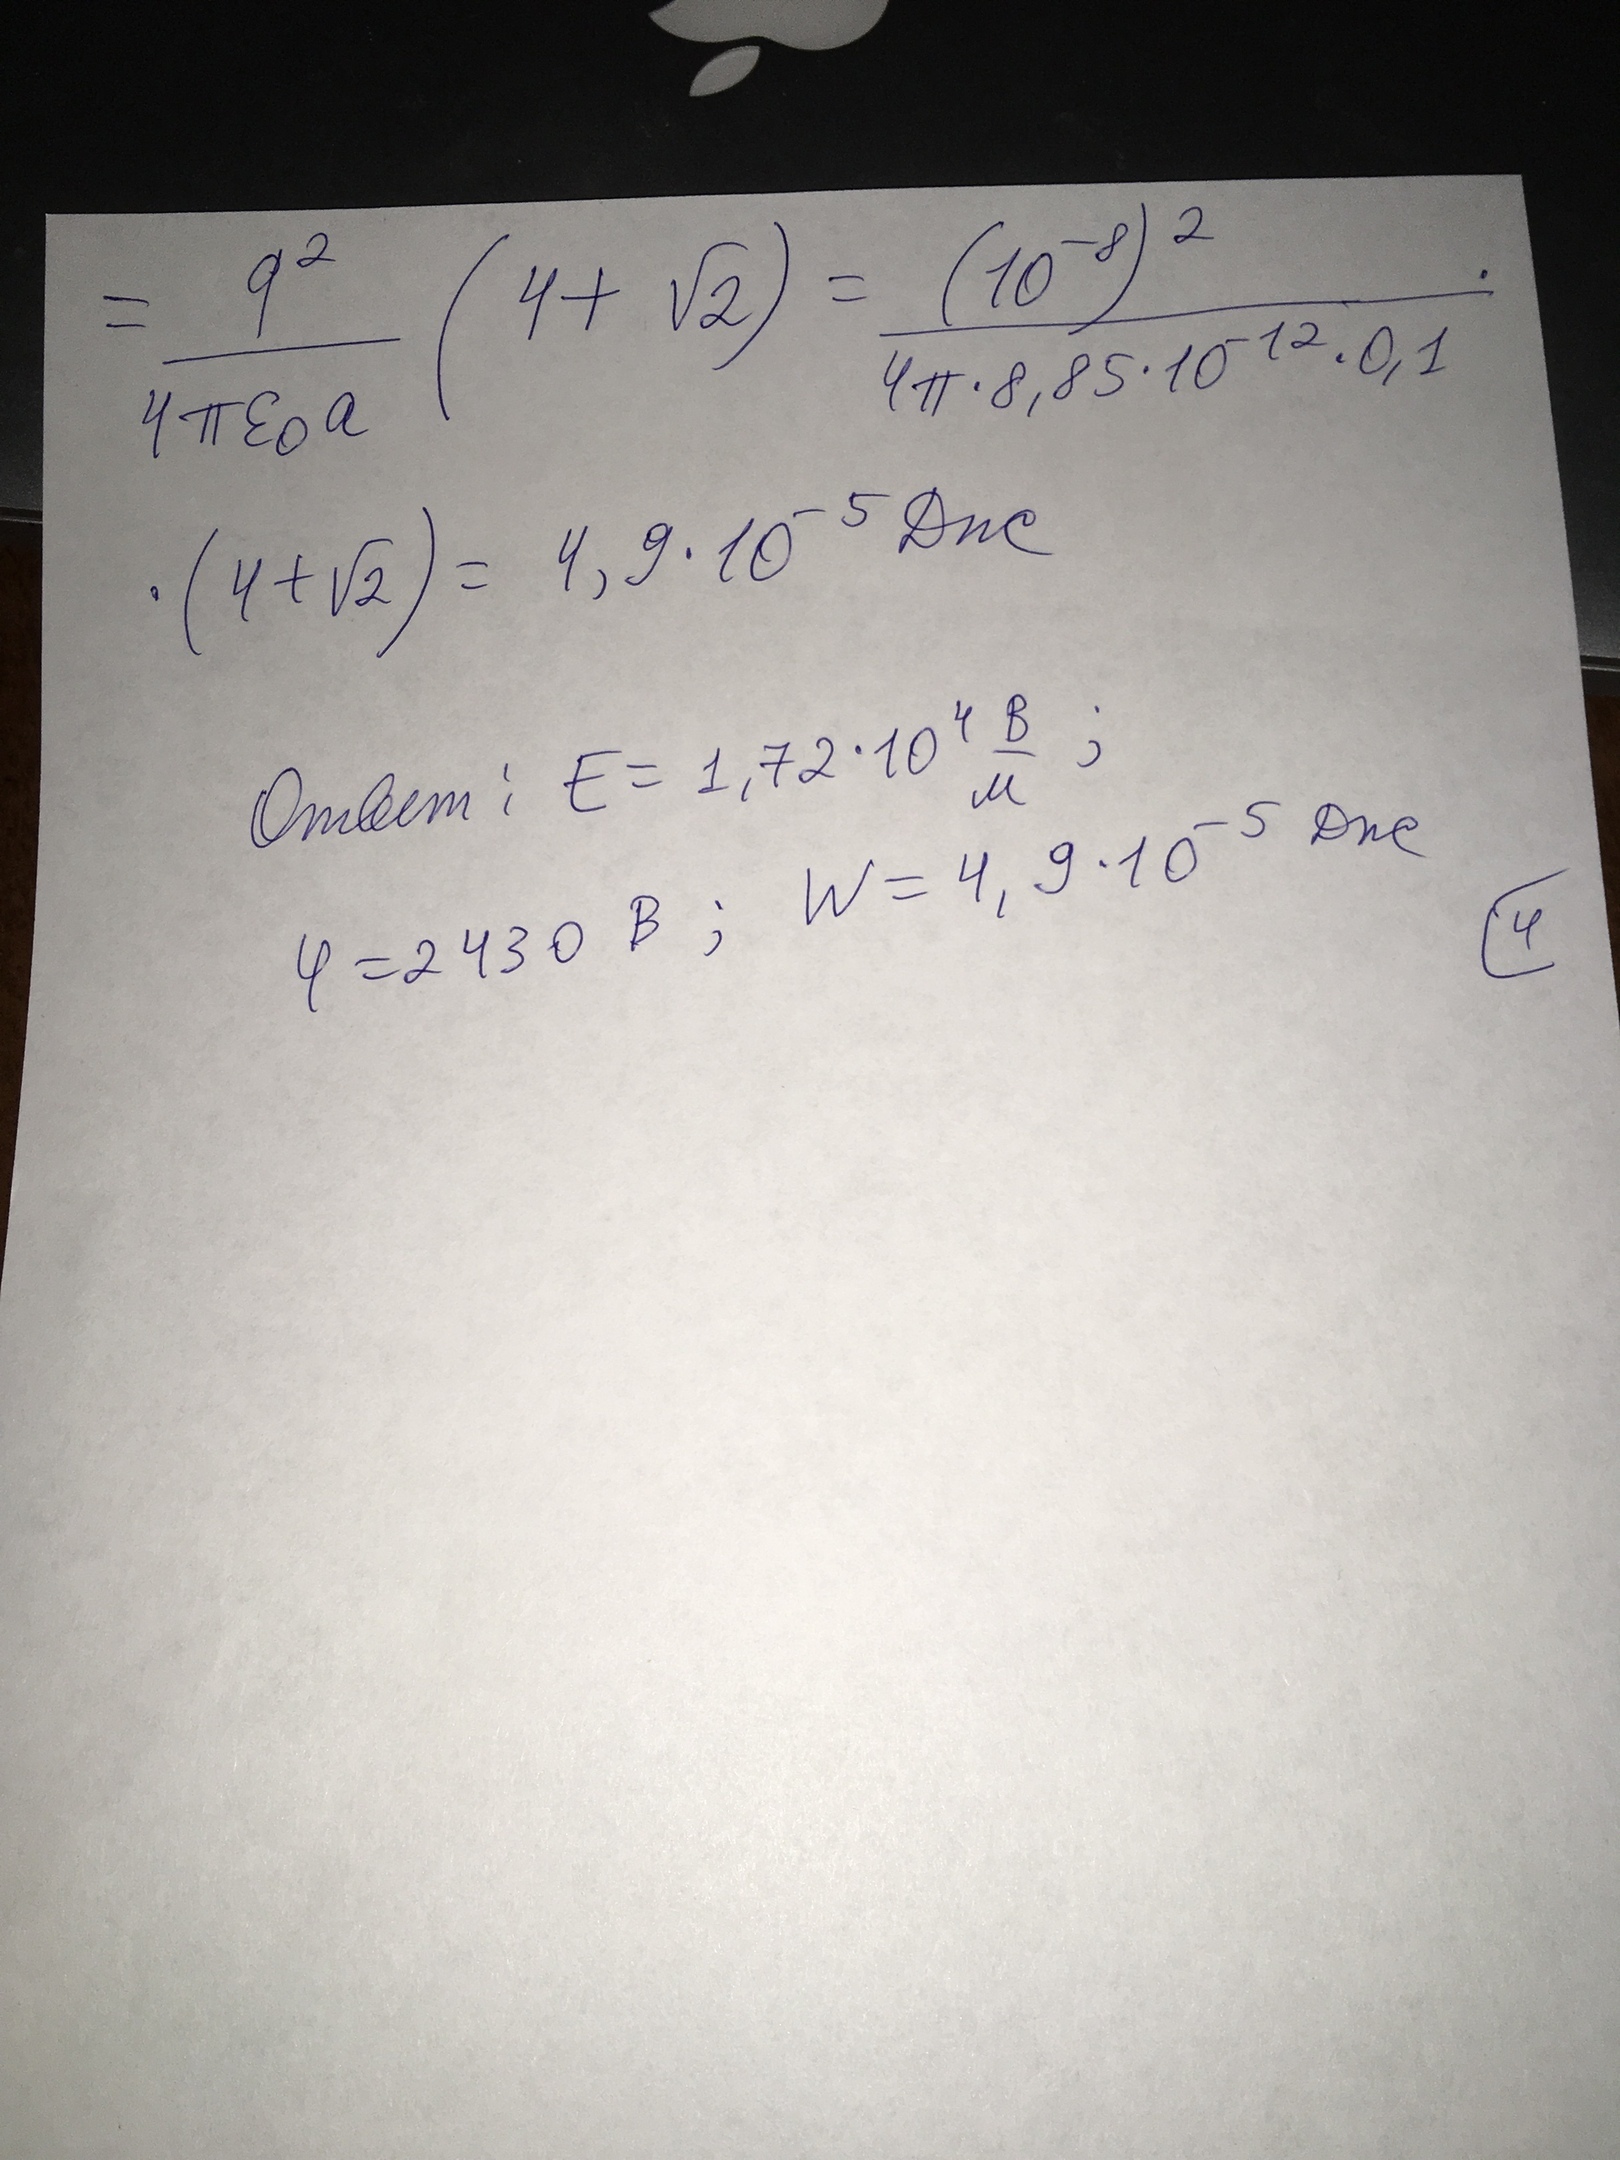 = q² / 4πε₀a (4 + √2) = (10⁻⁸)² / 4π · 8,85 · 10⁻¹² · 0,1 ·
· (4 + √2) = 4,9 · 10⁻⁵ Дж
Ответ: E = 1,72 · 10⁴ В/м ;
φ = 2430 В ; W = 4,9 · 10⁻⁵ Дж
4